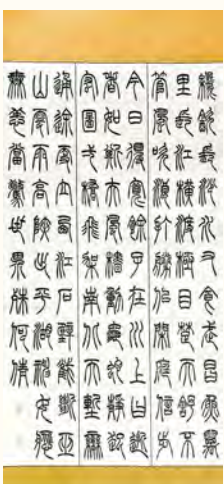 纔飲長沙水又食武昌魚萬
里長江橫渡極目楚天舒不
管風吹浪打勝似閒庭信步
今日得寬餘子在川上曰逝
者如斯夫風檣動龜蛇靜起
宏圖一橋飛架南北天塹變
通途更立西江石壁截斷巫
山雲雨高峽出平湖神女應
無恙當驚世界殊